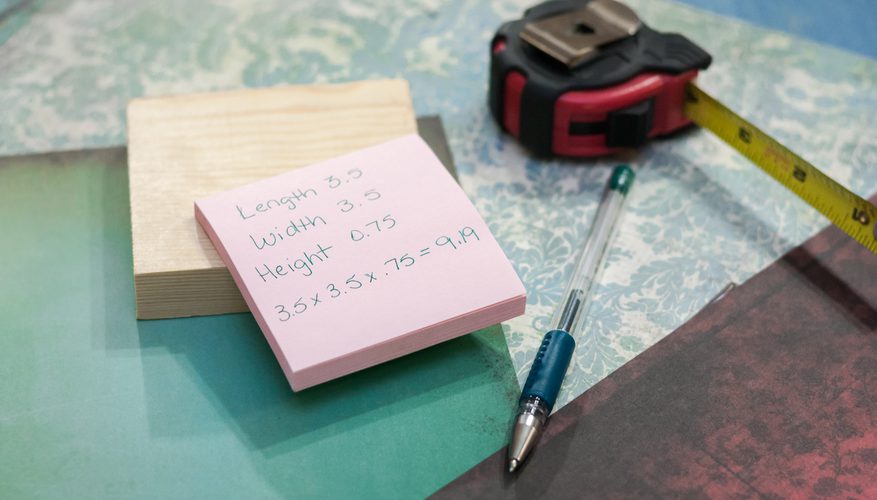 Length 3.5
Width 3.5
Height 0.75
3.5 x 3.5 x .75 = 9.19